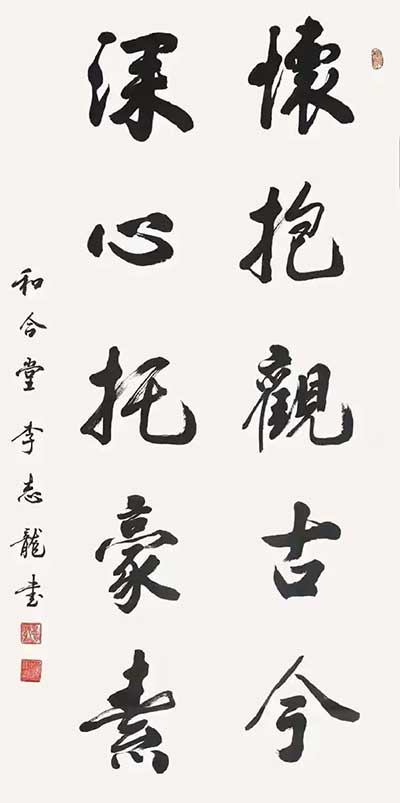 懷抱觀古今
深心托豪素
和合堂李志龍书